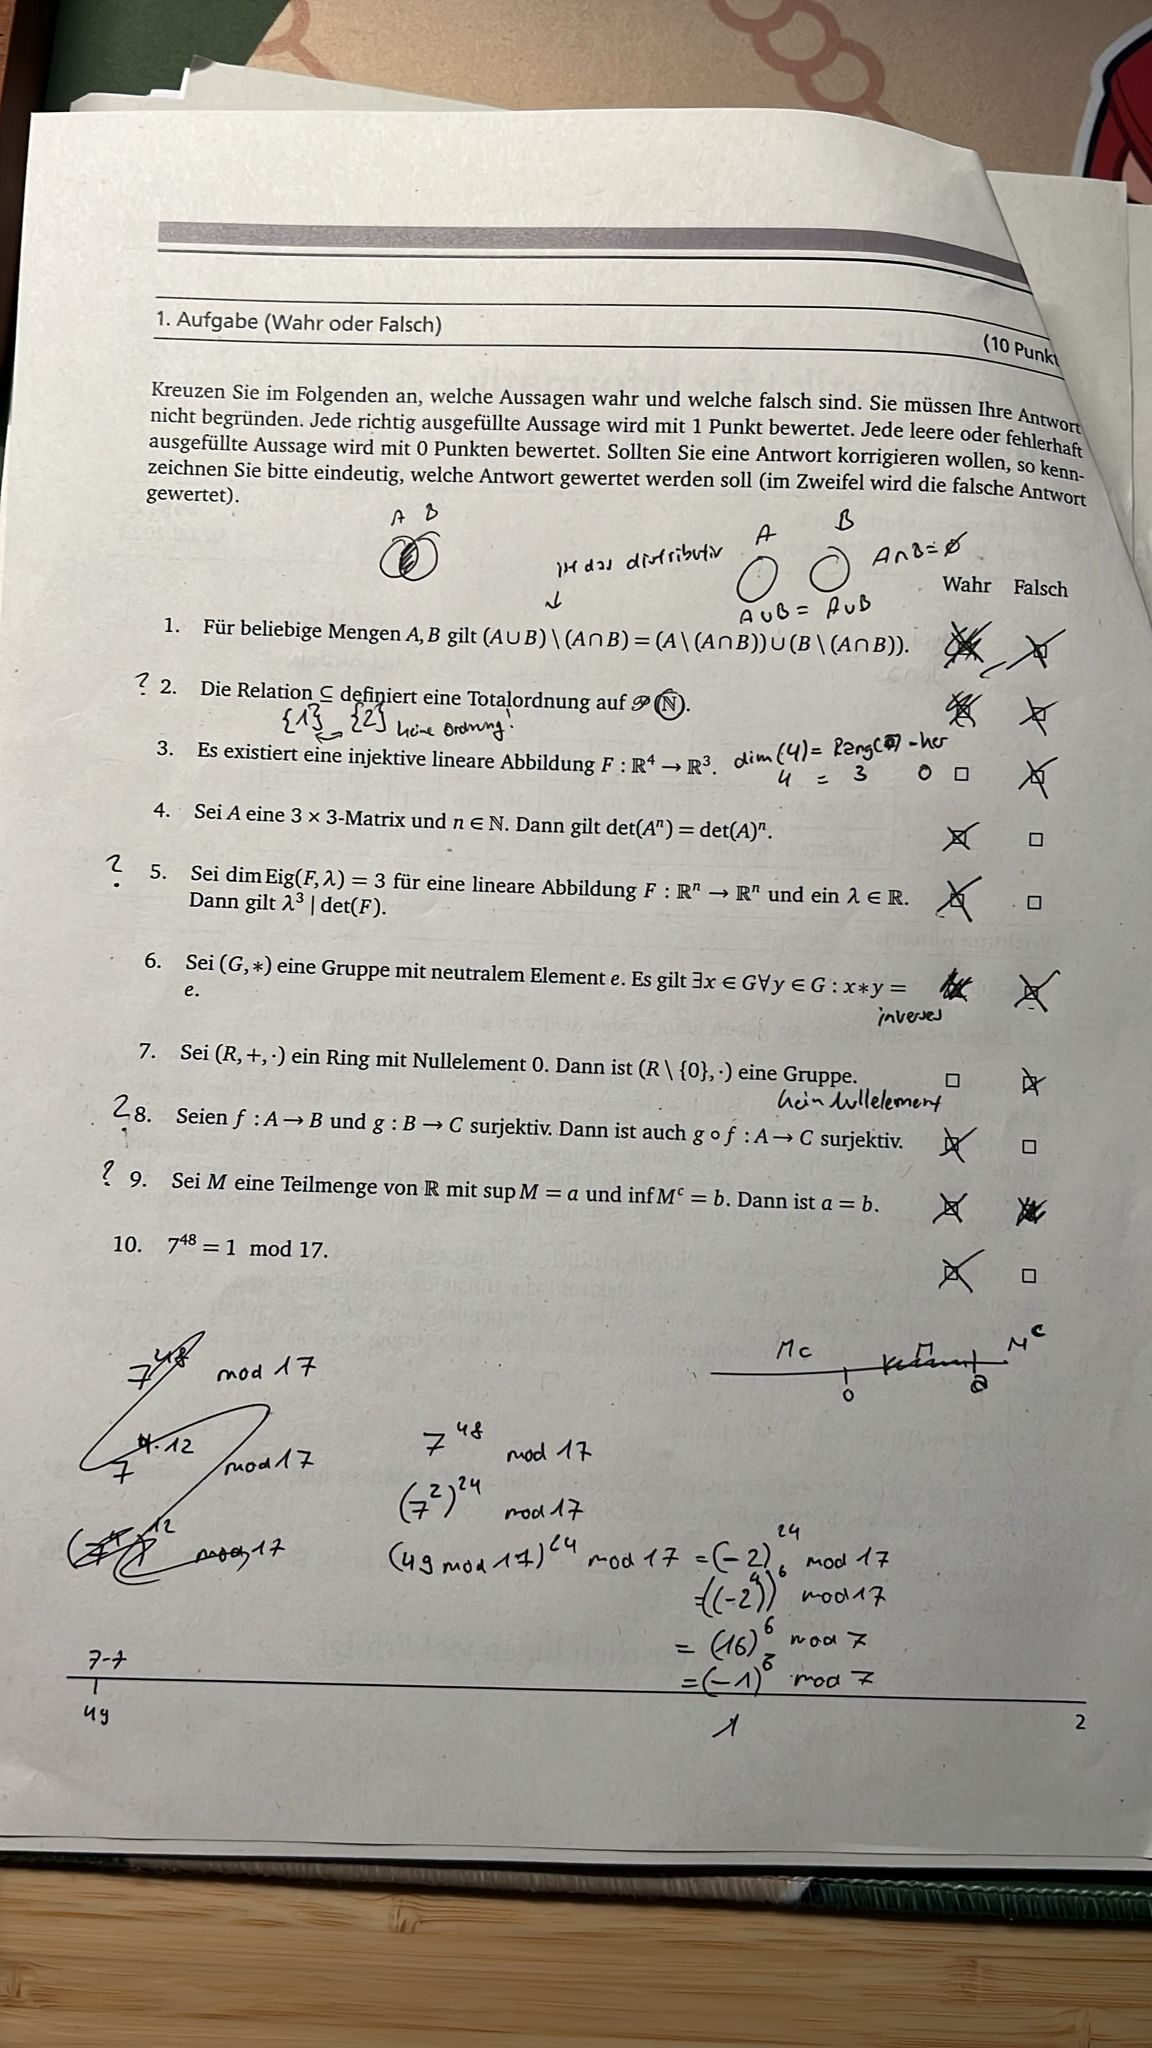 1. Aufgabe (Wahr oder Falsch)
(10 Punkt
Kreuzen Sie im Folgenden an, welche Aussagen wahr und welche falsch sind. Sie müssen Ihre Antwort
nicht begründen. Jede richtig ausgefüllte Aussage wird mit 1 Punkt bewertet. Jede leere oder fehlerhaft
ausgefüllte Aussage wird mit 0 Punkten bewertet. Sollten Sie eine Antwort korrigieren wollen, so kenn-
zeichnen Sie bitte eindeutig, welche Antwort gewertet werden soll (im Zweifel wird die falsche Antwort
gewertet).
A B
ist das distributiv
↓
A B A∩B=∅
A∪B = A∪B
Wahr Falsch
1. Für beliebige Mengen A, B gilt (A∪B)\(A∩B) = (A\(A∩B))∪(B\(A∩B)).
? 2. Die Relation ⊆ definiert eine Totalordnung auf 𝒫(ℕ).
{1} {2} keine Ordnung!
3. Es existiert eine injektive lineare Abbildung F : ℝ⁴ → ℝ³.
dim(4) = Rang( ) - ker
4 = 3 0
4. Sei A eine 3 × 3-Matrix und n ∈ ℕ. Dann gilt det(Aⁿ) = det(A)ⁿ.
? 5. Sei dim Eig(F, λ) = 3 für eine lineare Abbildung F : ℝⁿ → ℝⁿ und ein λ ∈ ℝ.
Dann gilt λ³ | det(F).
6. Sei (G, ∗) eine Gruppe mit neutralem Element e. Es gilt ∃x ∈ G∀y ∈ G : x∗y =
e.
inverses
7. Sei (R, +, ·) ein Ring mit Nullelement 0. Dann ist (R \ {0}, ·) eine Gruppe.
kein Nullelement
? 8. Seien f : A → B und g : B → C surjektiv. Dann ist auch g ∘ f : A → C surjektiv.
? 9. Sei M eine Teilmenge von ℝ mit sup M = a und inf Mᶜ = b. Dann ist a = b.
10. 7⁴⁸ = 1 mod 17.
Mc M Mᶜ
0 a
7⁴⁸ mod 17
7⁴·¹² mod 17
(7⁴)¹² mod 17
7⁴⁸ mod 17
(7²)²⁴ mod 17
(49 mod 17)²⁴ mod 17 = (-2)²⁴ mod 17
= ((-2⁴))⁶ mod 17
= (16)⁶ mod 7
= (-1)⁶ mod 7
1
7-7
49
2